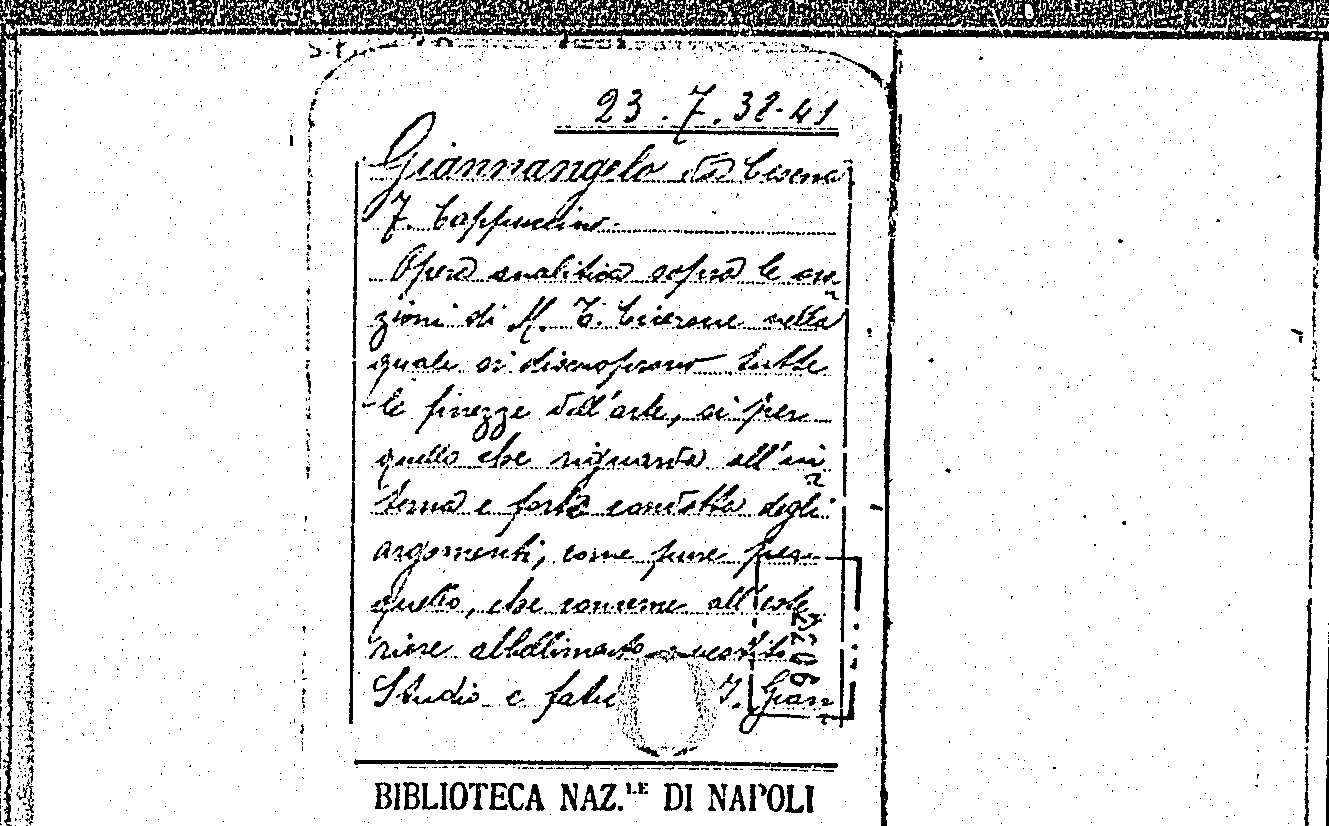 23.7.38-41
Giannangelo da Cesena
F. Cappuccino
Opera analitica sopra le ora
zioni di M. T. Cicerone nella
quale si discuoprono tutte
le finezze dell'arte, si per
quello che riguarda all'in
terna e forte condotta degli
argomenti, come pure per
quello, che concerne all'este
riore abbellimento
Studio e F. Gian
BIBLIOTECA NAZ.LE DI NAPOLI